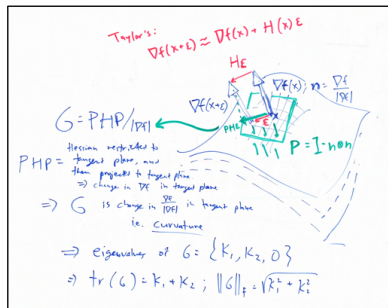 Taylor's:
∇f(x+ε) ≈ ∇f(x) + H(x)ε
Hε
∇f(x); n = ∇f/|∇f|
∇f(x+ε)
G = PHP/|∇f|
PHε
ε
x
P = I - n⊗n
Hessian restricted to
tangent plane, and
PHP = then projected to tangent plane
⇒ change in ∇f in tangent plane
⇒ G is change in ∇f/|∇f| in tangent plane
i.e. curvature
⇒ eigenvalues of G = {K₁, K₂, 0}
⇒ tr(G) = K₁ + K₂ ; ‖G‖_F = √K₁² + K₂²